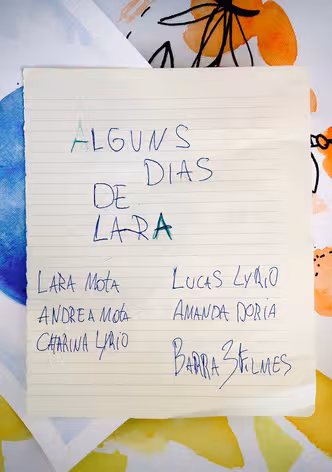 ALGUNS
DIAS
DE
LARA
LARA MOTA
ANDREA MOTA
CATARINA LYRIO
LUCAS LYRIO
AMANDA DORIA
BARRA 3 FILMES